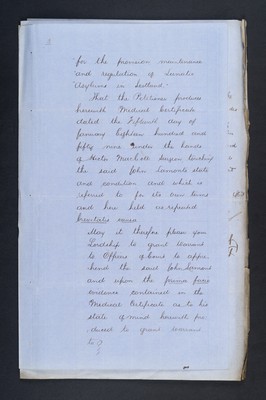 for the provision maintenance
and regulation of Lunatic
Asylums in Scotland.
That the Petitioner produces
herewith Medical Certificate
dated the Fifteenth day of
January Eighteen hundred and
fifty nine under the hands
of Hector Surgeon touching
the said John Lamont's state
and condition and which is
referred to for its own terms
and here held as repeated
brevitatis causa
May it therefore please your
Lordship to grant Warrant
to Officers of Court to appre
hend the said John Lamont
and upon the prima facie
evidence contained in the
Medical Certificate as to his
state of mind herewith pro
duced to grant Warrant
to